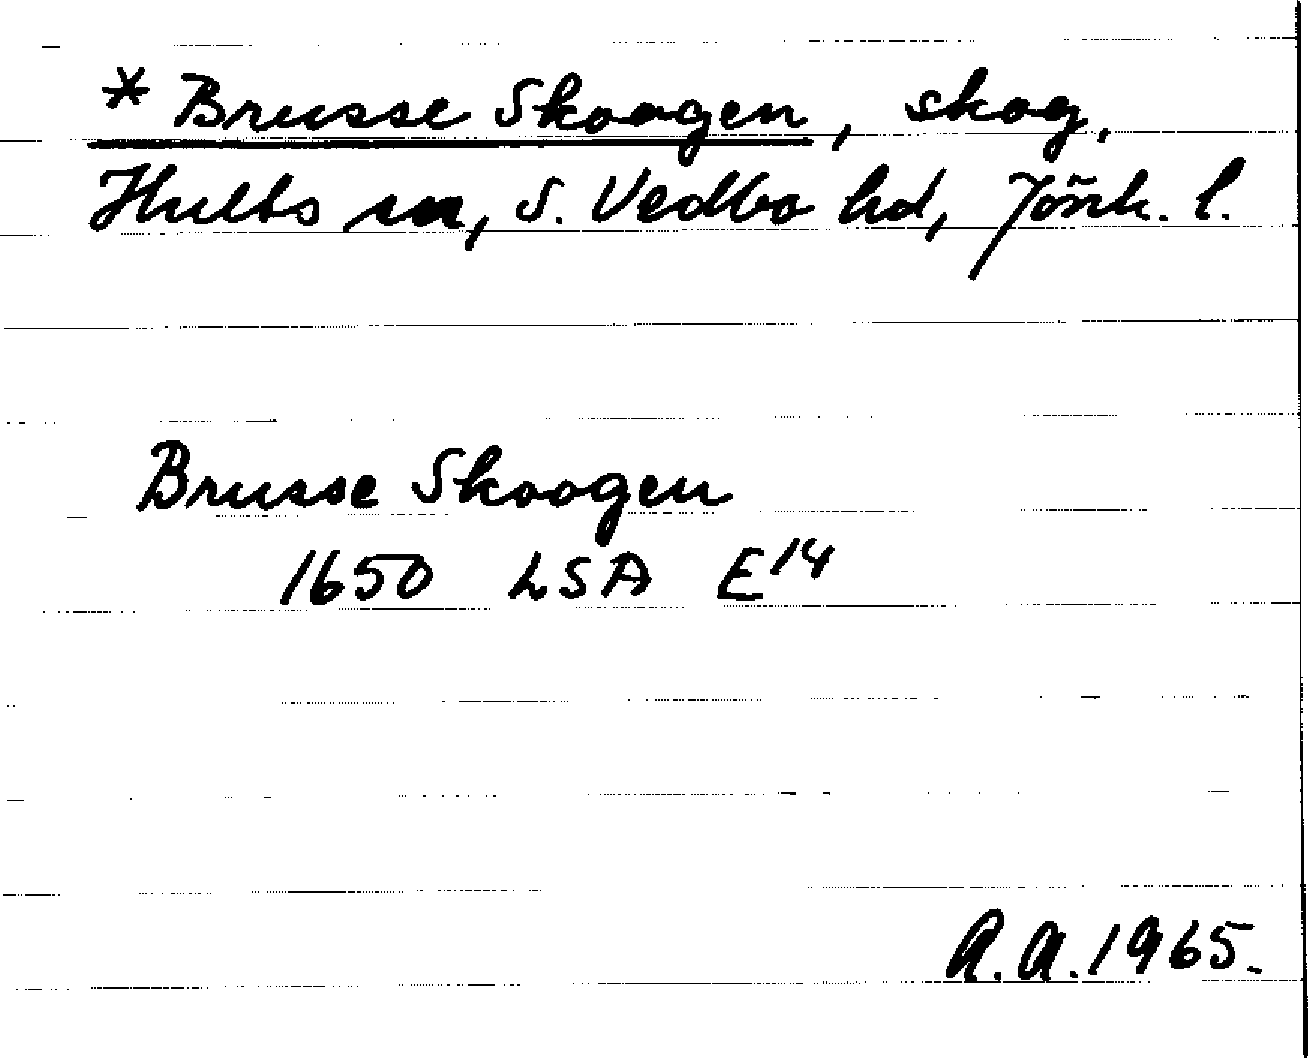 * Brusse Skoogen, skog,
Hults sn, S. Vedbo hd, Jönk. l.
Brusse Skoogen
1650 LSA E14
A.A. 1965.